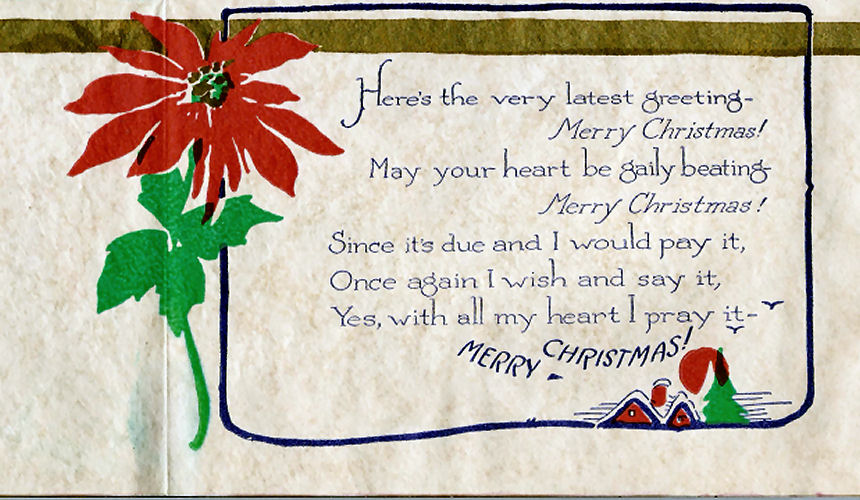 Here's the very latest greeting-
Merry Christmas!
May your heart be gaily beating-
Merry Christmas!
Since it's due and I would pay it,
Once again I wish and say it,
Yes, with all my heart I pray it-
MERRY CHRISTMAS!